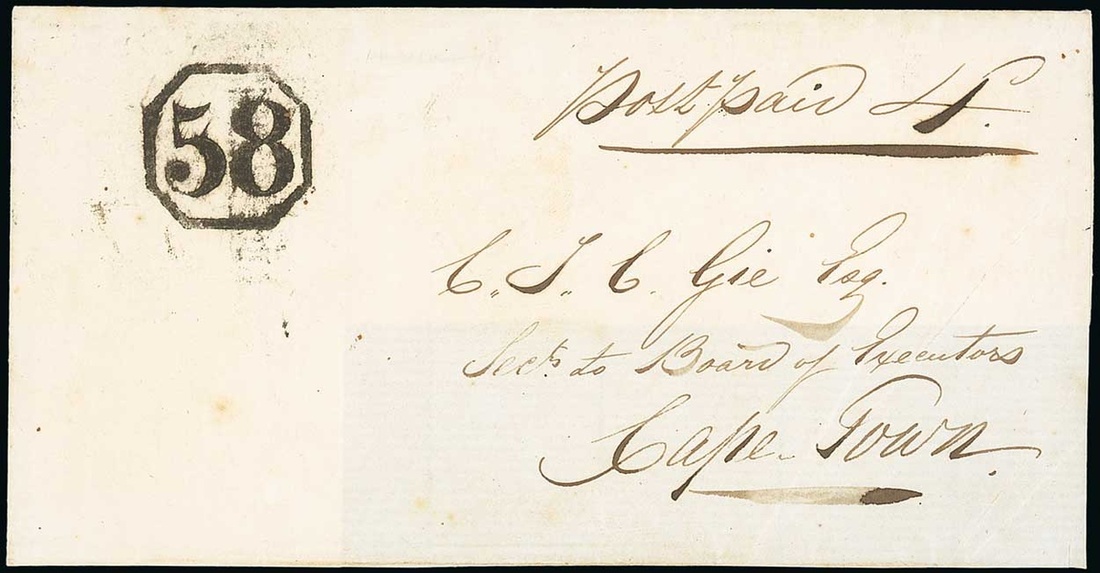 58
Post paid 4.
C. J. C. Gie Esq.
Secy. to Board of Executors
Cape Town.